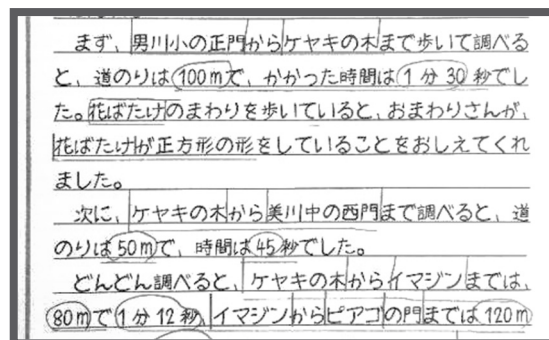 まず、男川小の正門からケヤキの木まで歩いて調べる
と、道のりは100mで、かかった時間は1分30秒でし
た。花ばたけのまわりを歩いていると、おまわりさんが、
花ばたけが正方形の形をしていることをおしえてくれ
ました。
次に、ケヤキの木から美川中の西門まで調べると、道
のりは50mで、時間は45秒でした。
どんどん調べると、ケヤキの木からイマジンまでは、
80mで1分12秒、イマジンからピアゴの門までは120m